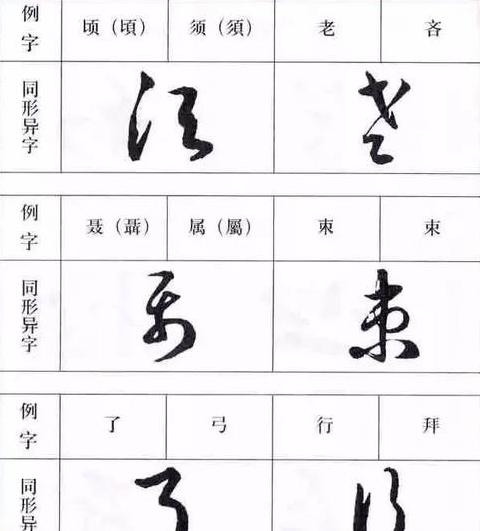 例字 顷（頃） 须（須） 老 吝
同形异字
例字 聂（聶） 属（屬） 朿 束
同形异字
例字 了 弓 行 拜
同形异